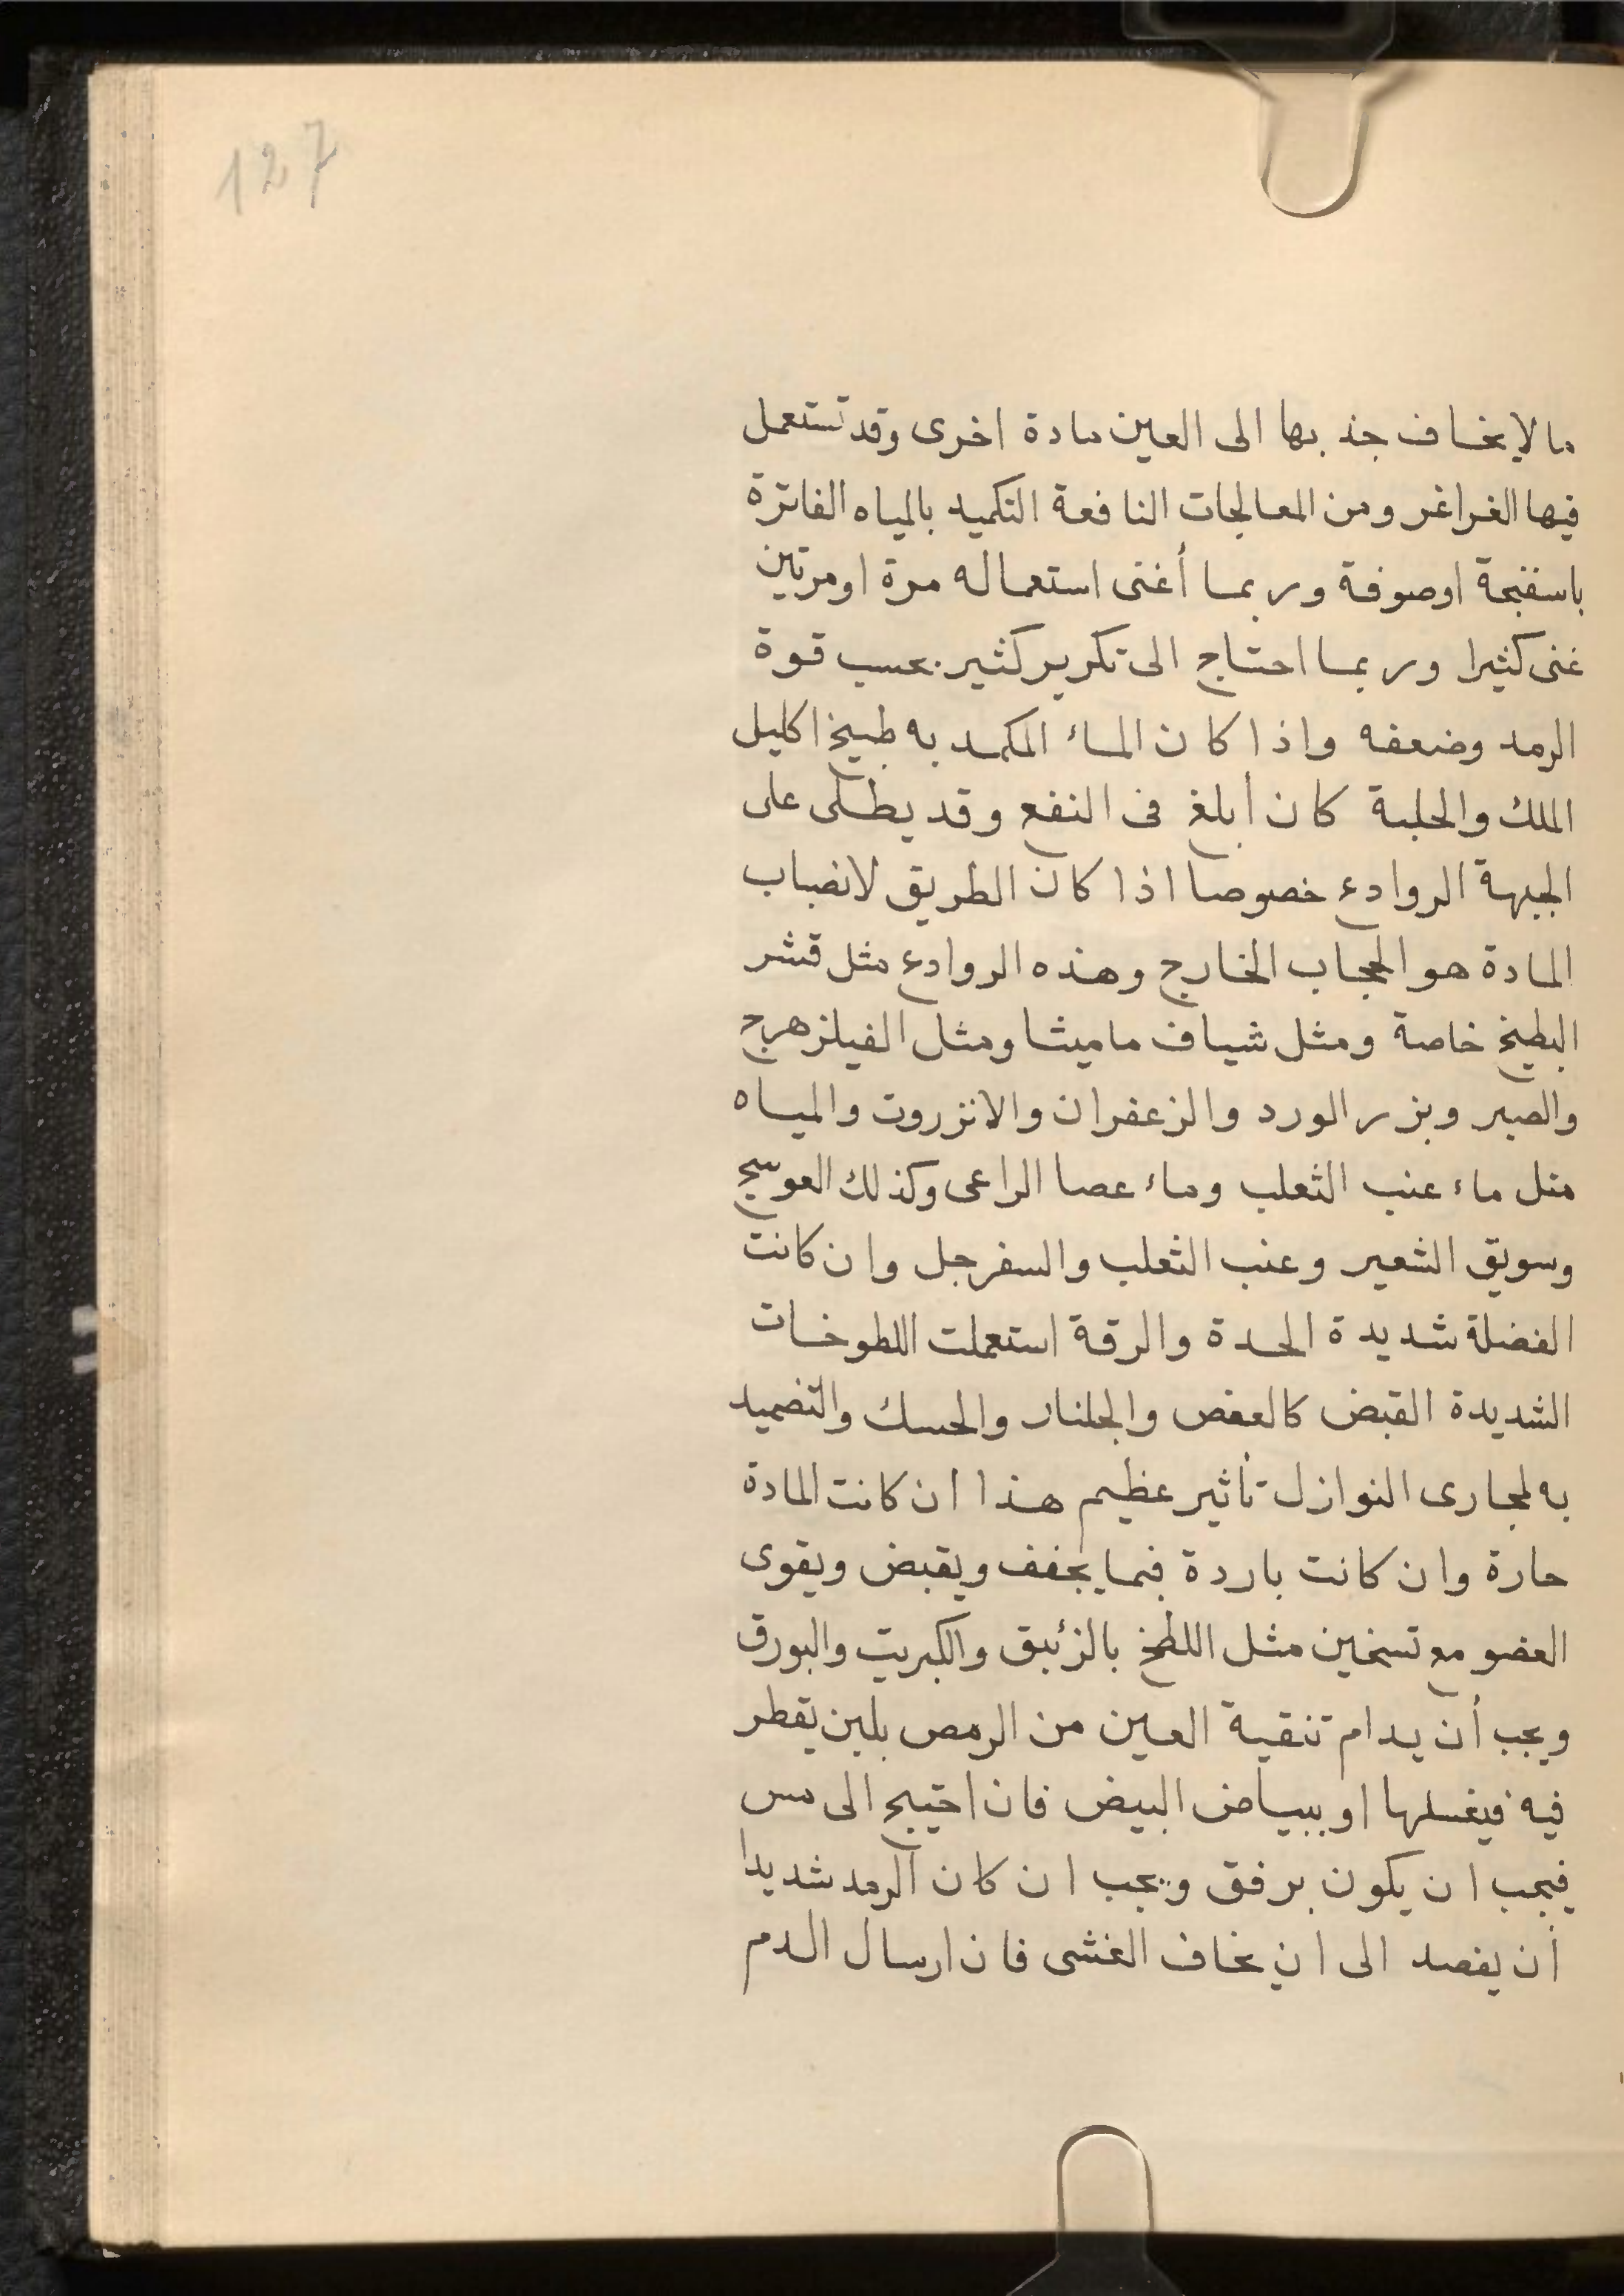 127
ما لا يخاف جذ بها الى العين مادة اخرى وقد تستعمل
فيها الغراغر ومن المعالجات النافعة التكميد بالمياه الفاترة
باسفنجة اوصوفة وربما أغنى استعماله مرة اومرتين
غنى كثيرا وربما احتاج الى تكرير كثير بحسب قوة
الرمد وضعفه واذا كان الماء المكمد به طبيخ اكليل
الملك والحلبة كان أبلغ فى النفع وقد يطلى على
الجبهة الروادع خصوصا اذا كان الطريق لانصباب
المادة هو الحجاب الخارج وهذه الروادع مثل قشر
البطيخ خاصة ومثل شياف ماميثا ومثل الفيلزهرج
والصبر وبزر الورد والزعفران والانزروت والمياه
مثل ماء عنب الثعلب وماء عصا الراعى وكذلك العوسج
وسويق الشعير وعنب الثعلب والسفرجل وان كانت
الفضلة شديدة الحدة والرقة استعملت اللطوخات
الشديدة القبض كالعفص والجلنار والحسك والتضميد
به لمجارى النوازل تأثير عظيم هذا ان كانت المادة
حارة وان كانت باردة فبما يجفف ويقبض ويقوى
العضو مع تسخين مثل اللطخ بالزئبق والكبريت والبورق
ويجب أن يدام تنقية العين من الرمص بلبن يقطر
فيه فيغسلها او ببياض البيض فان احتيج الى مس
فيجب ان يكون برفق ويجب ان كان الرمد شديدا
أن يفصد الى ان يخاف الغشى فان ارسال الدم